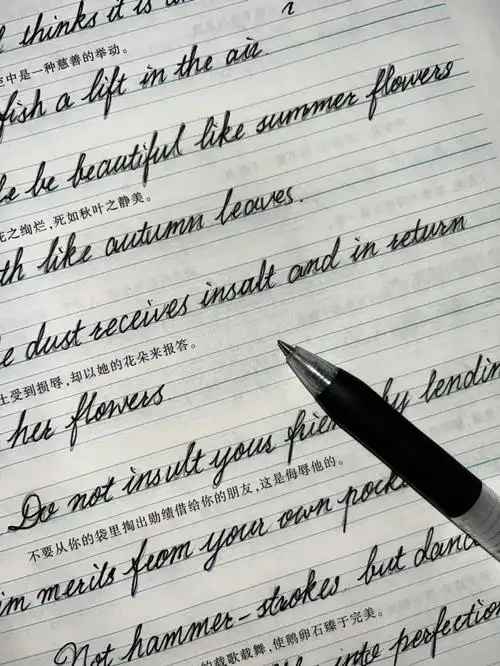 thinks it is a
中是一种慈善的举动。
fish a lift in the air.
be beautiful like summer flowers
花之绚烂,死如秋叶之静美。
th like autumn leaves.
dust receives insalt and in return
土受到损辱,却以她的花朵来报答。
her flowers
Do not insult your frien by lendin
不要从你的袋里掏出勋绩借给你的朋友,这是侮辱他的。
im merits from your own pocke
Not hammer-strokes, but danc
的载歌载舞,使鹅卵石臻于完美。
into perfection